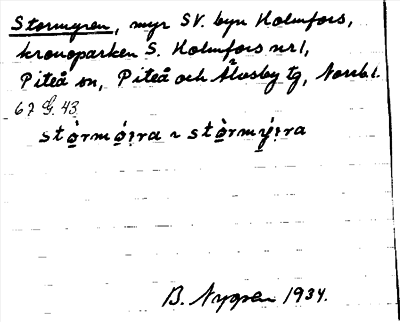 Stormyren, myr SV. byn Holmfors,
kronoparken S. Holmfors nr 1,
Piteå sn, Piteå och Älvsby tg, Norrb. l.
67 G. 43
stòrmóịra ~ stòrmýịra
B. Nygren 1934.